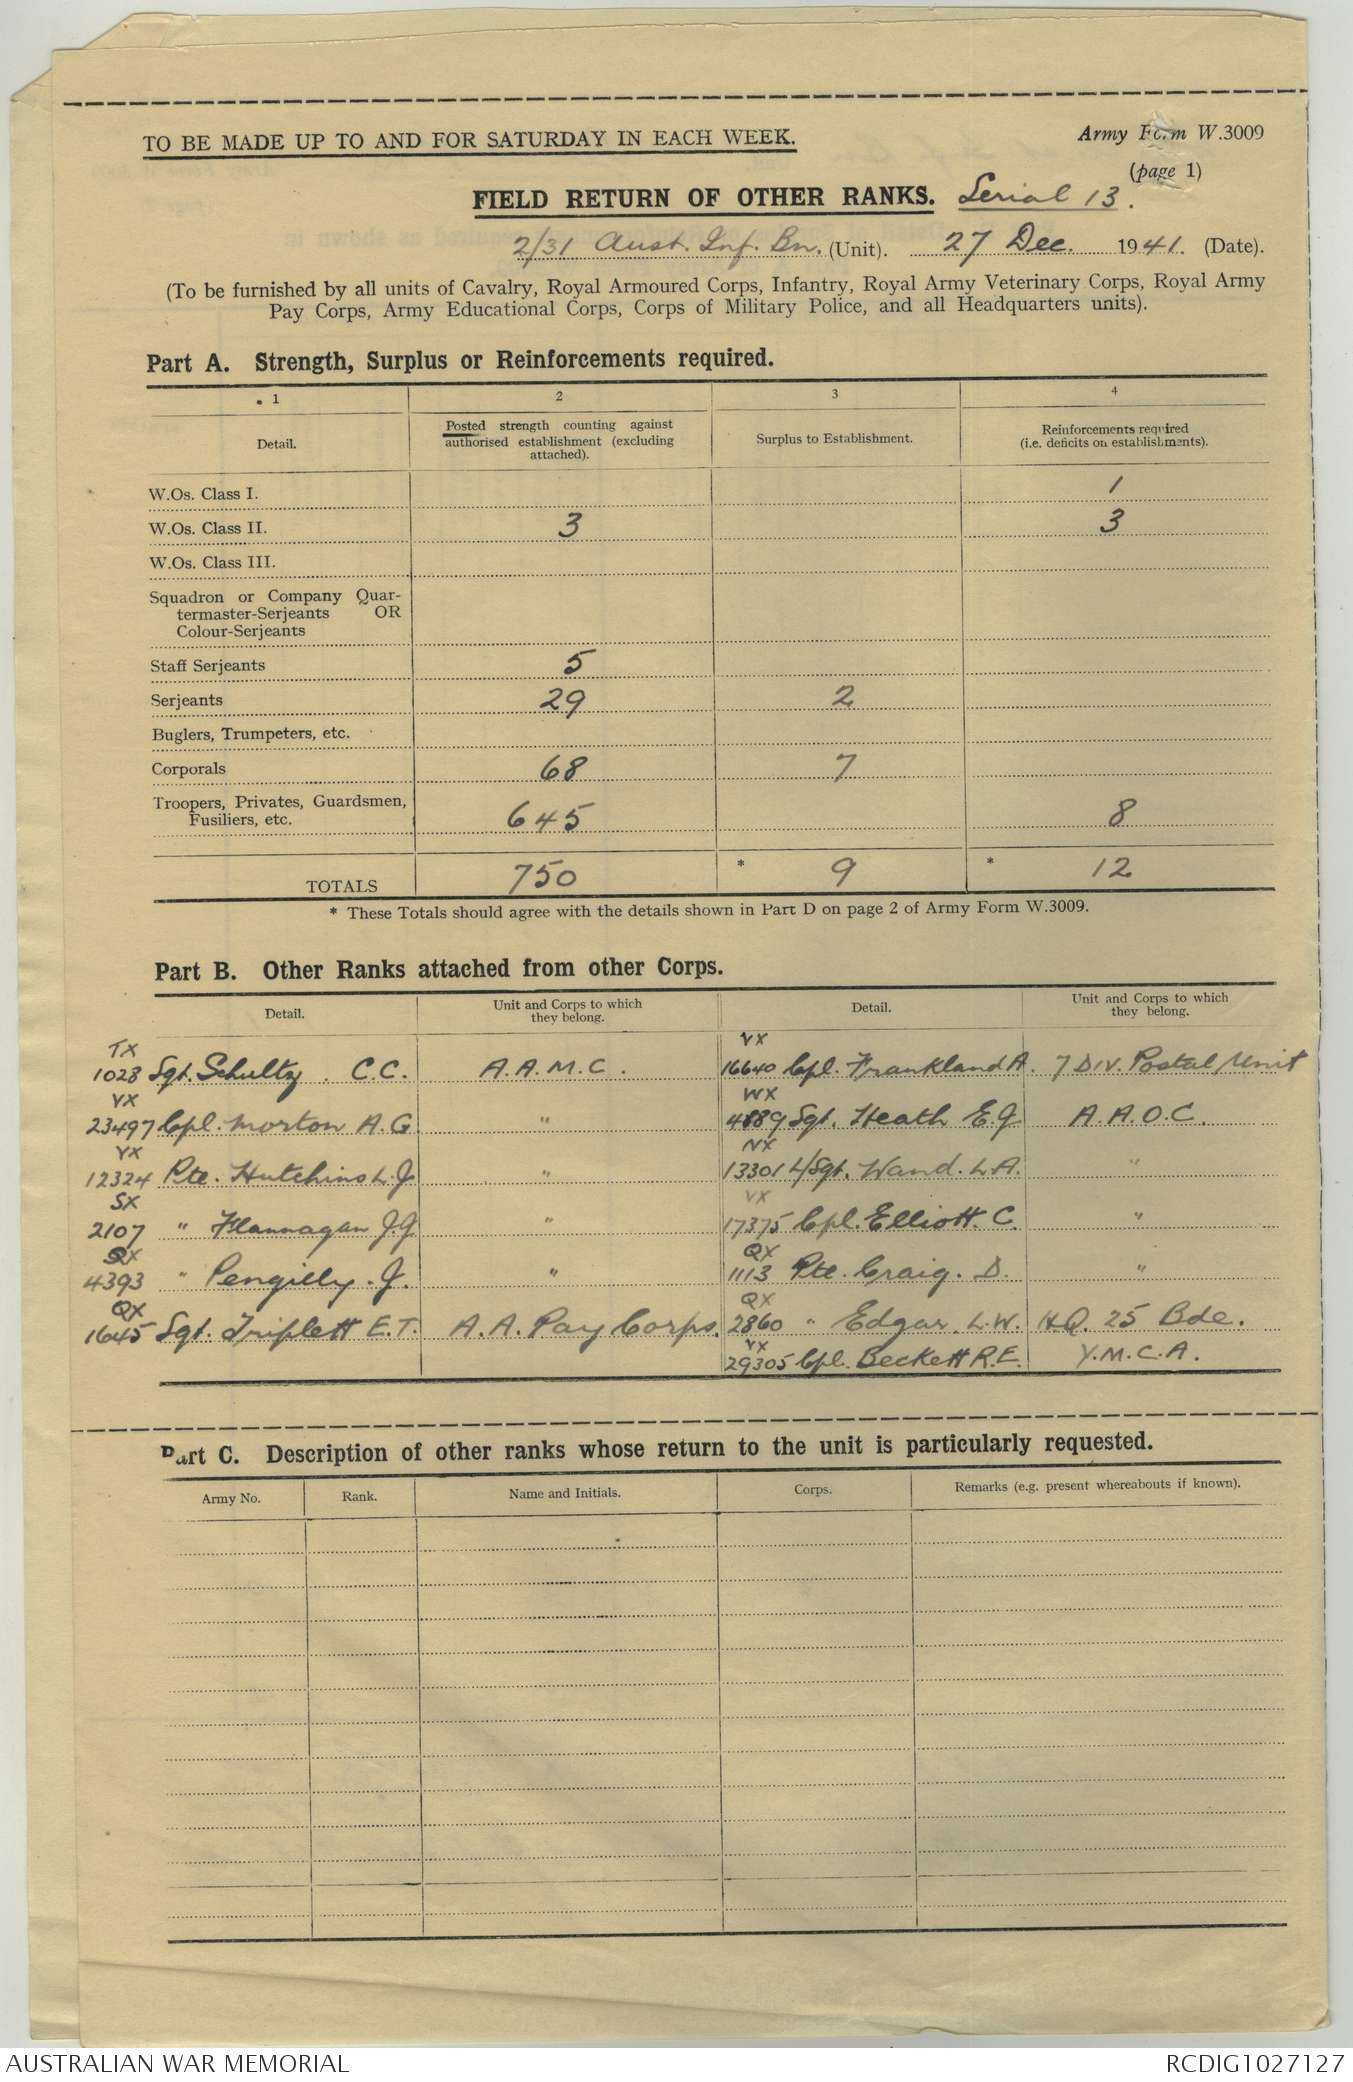 TO BE MADE UP TO AND FOR SATURDAY IN EACH WEEK.
Army Form W.3009
(page 1)
FIELD RETURN OF OTHER RANKS. Serial 13.
2/31 Aust. Inf. Bn. (Unit). 27 Dec. 1941. (Date).
(To be furnished by all units of Cavalry, Royal Armoured Corps, Infantry, Royal Army Veterinary Corps, Royal Army
Pay Corps, Army Educational Corps, Corps of Military Police, and all Headquarters units).
Part A. Strength, Surplus or Reinforcements required.
1 2 3 4
Detail.
Posted strength counting against
authorised establishment (excluding
attached).
Surplus to Establishment.
Reinforcements required
(i.e. deficits on establishments).
W.Os. Class I. 1
W.Os. Class II. 3 3
W.Os. Class III.
Squadron or Company Quar-
termaster-Serjeants OR
Colour-Serjeants
Staff Serjeants 5
Serjeants 29 2
Buglers, Trumpeters, etc.
Corporals 68 7
Troopers, Privates, Guardsmen,
Fusiliers, etc. 645 8
TOTALS 750 * 9 * 12
* These Totals should agree with the details shown in Part D on page 2 of Army Form W.3009.
Part B. Other Ranks attached from other Corps.
Detail.
Unit and Corps to which
they belong.
Detail.
Unit and Corps to which
they belong.
TX
1028 Sgt. Schultz. C.C. A.A.M.C.
VX
16640 Cpl. Frankland A. 7 Div. Postal Unit
VX
23497 Cpl. Morton A.G. "
WX
4889 Sgt. Heath E.J. A.A.O.C.
VX
12324 Pte. Hutchins L.J. "
NX
13301 L/Sgt. Wand. L.A. "
SX
2107 " Flannagan J.J. "
VX
17375 Cpl. Elliott. C. "
QX
4393 " Pengilly. J. "
QX
1113 Pte. Craig. D. "
QX
1645 Sgt. Triplett E.T. A.A. Pay Corps.
QX
2860 " Edgar. L.W. H.Q. 25 Bde.
VX
29305 Cpl. Beckett R.E. Y.M.C.A.
Part C. Description of other ranks whose return to the unit is particularly requested.
Army No. Rank. Name and Initials. Corps. Remarks (e.g. present whereabouts if known).
AUSTRALIAN WAR MEMORIAL RCDIG1027127